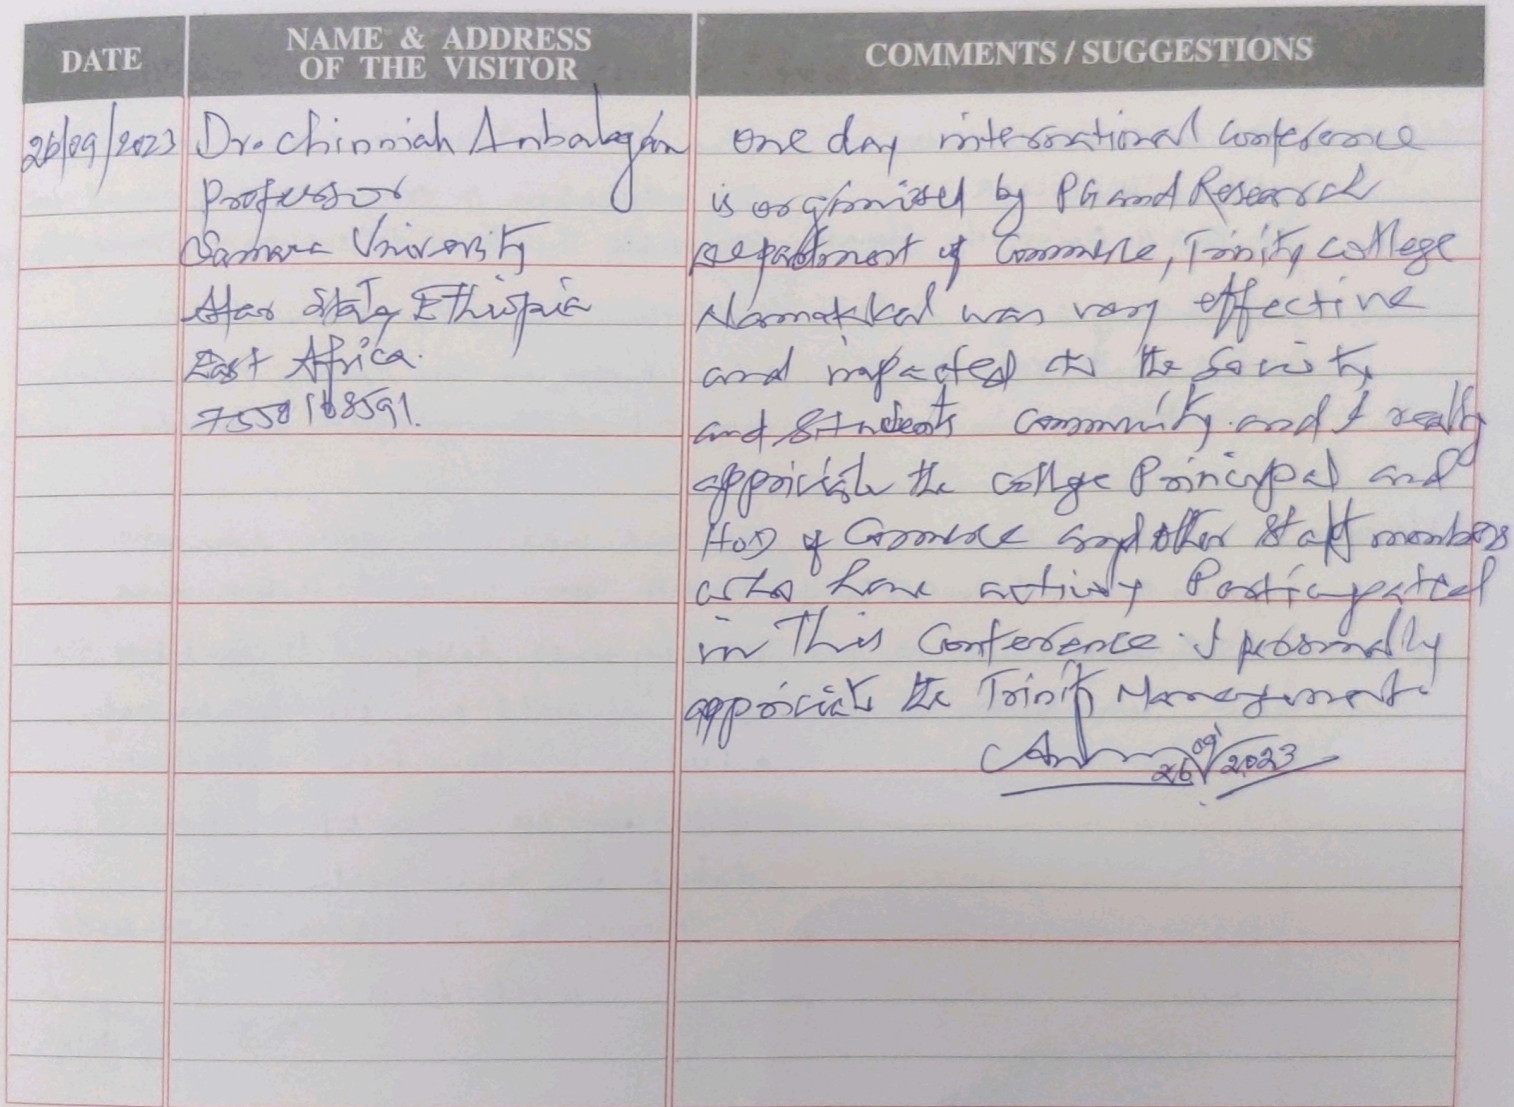 DATE
NAME & ADDRESS
OF THE VISITOR
COMMENTS / SUGGESTIONS
26/09/2023
Dr. Chinniah Anbalagan
Professor
Samara University
Afar State, Ethiopia
East Africa.
7558168591.
One day international conference
is organised by PG and Research
Department of Commerce, Trinity college
Namakkal was very effective
and impacted to the Society
and Students community. and I really
appriciate the college Principal and
HOD of Commerce and other Staff members
who have actively Participated
in This Conference. I personally
appriciate the Trinity Management.
26/09/2023